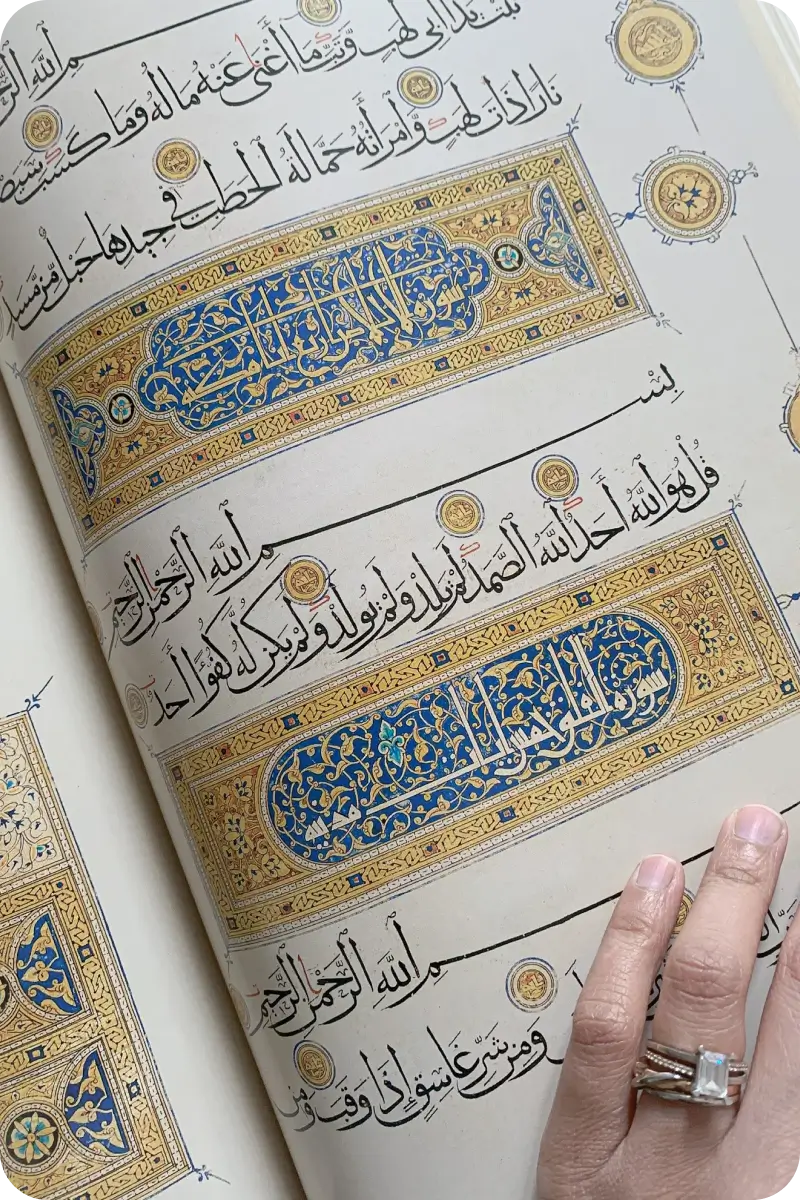 ـم الله
تَبَّتْ يَدَا أَبِى لَهَبٍ وَّتَبَّ مَا أَغْنَىٰ عَنْهُ مَالُهُ وَمَا كَسَبَ
نَارًا ذَاتَ لَهَبٍ وَّامْرَأَتُهُ حَمَّالَةَ الْحَطَبِ فِي جِيدِهَا حَبْلٌ مِّن مَّسَدٍ
سورة الاخلاص اربع ايات مكية
بِسْمِ اللهِ الرَّحْمٰنِ الرَّحِيمِ
قُلْ هُوَ اللهُ أَحَدٌ اللهُ الصَّمَدُ لَمْ يَلِدْ وَلَمْ يُولَدْ وَلَمْ يَكُن لَّهُ كُفُؤًا أَحَدٌ
سورة الفلق خمس ايات مدنية
ـمِ اللهِ الرَّحْمٰنِ الرَّحِيمِ
وَمِن شَرِّ غَاسِقٍ إِذَا وَقَبَ وَمِن